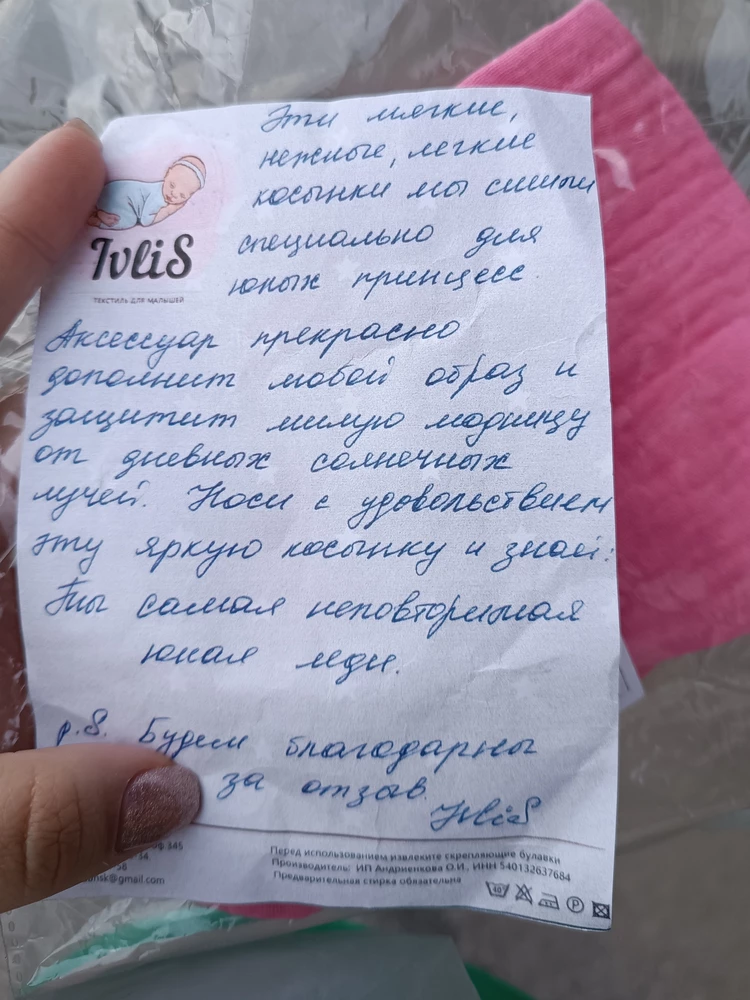 Эти мягкие,
нежные, легкие
косынки мы сшили
специально для
юных принцесс.
IvliS
ТЕКСТИЛЬ ДЛЯ МАЛЫШЕЙ
Аксессуар прекрасно
дополнит любой образ и
защитит милую модницу
от дневных солнечных
лучей. Носи с удовольствием
эту яркую косынку и знай:
Ты самая неповторимая
юная леди.
p.S. Будем благодарны
за отзыв.
IvliS
оф 345
34,
58
nsk@gmail.com
Перед использованием извлеките скрепляющие булавки
Производитель: ИП Андриенкова О.И. ИНН 540132637684
Предварительная стирка обязательна
40
P